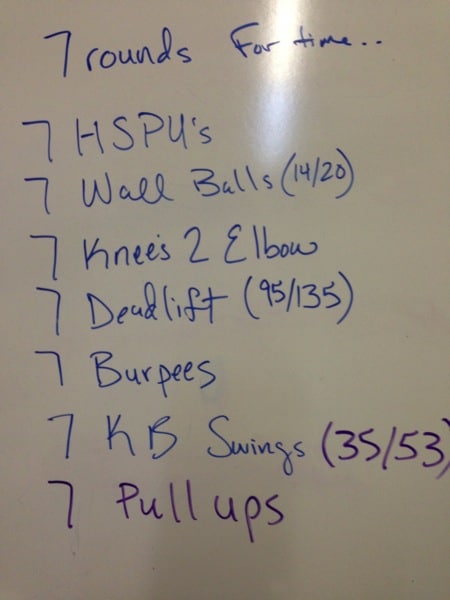 7 rounds For time..
7 HSPU's
7 Wall Balls (14/20)
7 Knee's 2 Elbow
7 Deadlift (95/135)
7 Burpees
7 KB Swings (35/53)
7 Pull ups